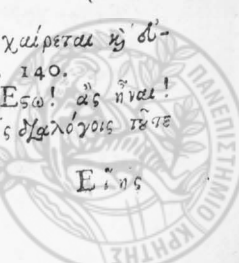 χαίρεται κὶ δι-
140.
Εςω! ἂς ἦναι!
διαλόγοις τȣ̃τε
Εἴης
ΠΑΝΕΠΙΣΤΗΜΙΟ ΚΡΗΤΗΣ